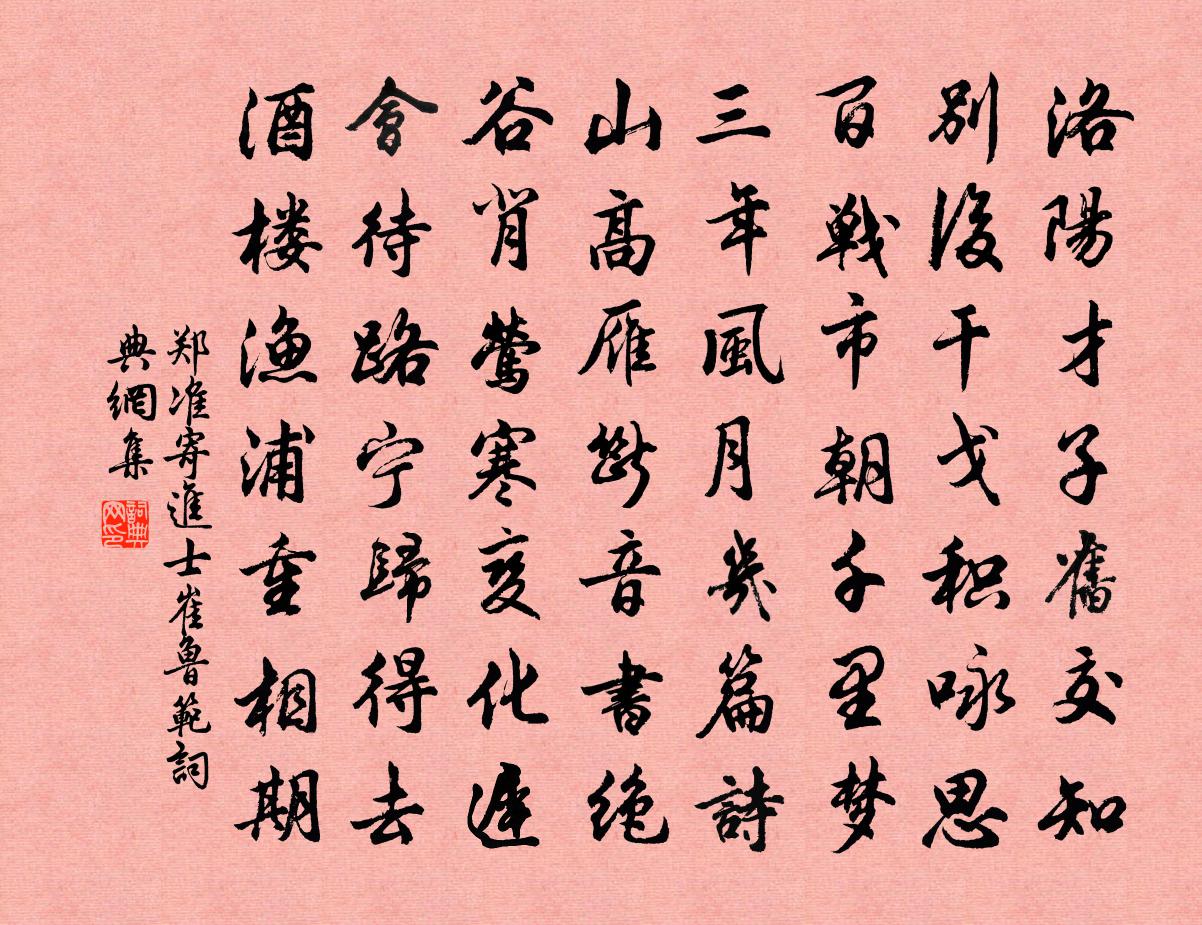 洛陽才子舊交知
別後干戈积咏思
百戦市朝千里梦
三年風月幾篇詩
山高雁断音書绝
谷背鶯寒变化遲
會待路宁歸得去
酒楼漁浦重相期
郑准寄進士崔魯範詞
典網集
詞典网印